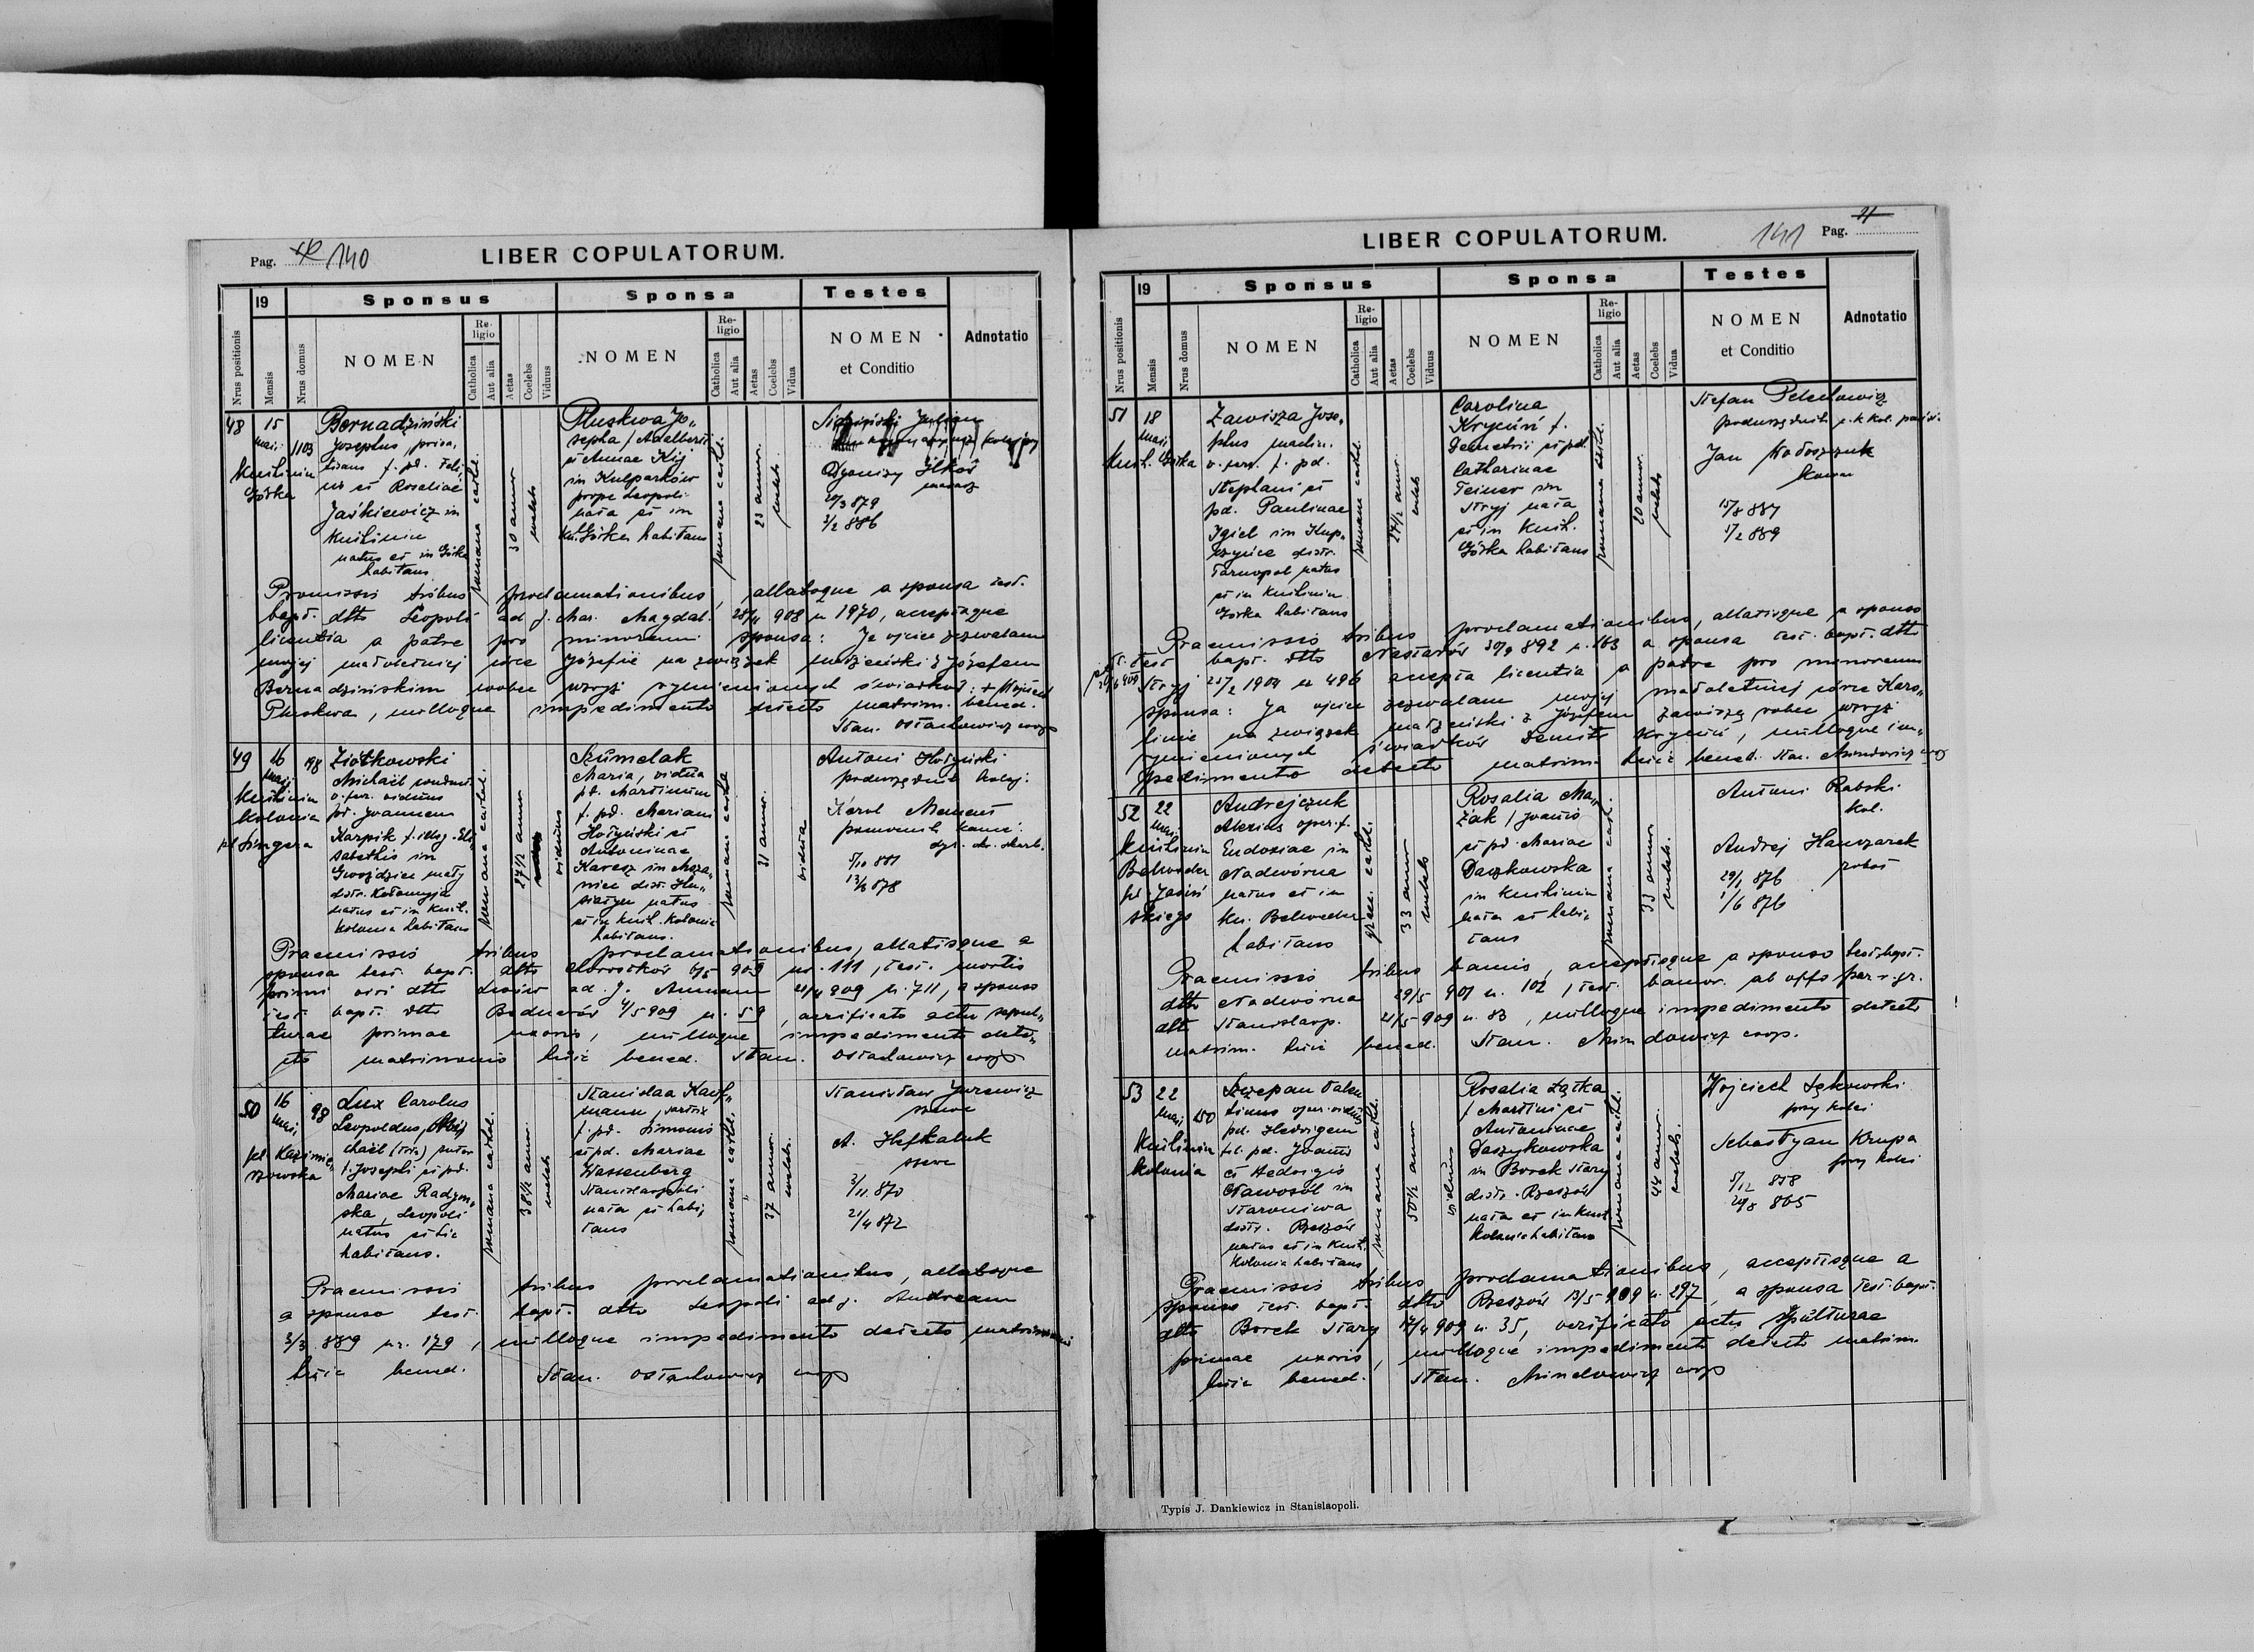 Pag. 140
LIBER COPULATORUM.
19
Sponsus
Sponsa
Testes
Nrus positionis
Mensis
Nrus domus
NOMEN
Religio
Catholica
Aut alia
Aetas
Coelebs
Viduus
NOMEN
Religio
Catholica
Aut alia
Aetas
Coelebs
Vidua
NOMEN
et Conditio
Adnotatio
48
15
maji
1103
Knihinin
Górka
Bernadziński
Josephus, priva„
tians f. pd. Feli
cis et Rosaliae
Jaśkiewicz in
Knihinin
natus et in Górka
habitans
romana cathol.
30 annor.
coelebs
Pluskwa Jo„
sepha f. Adalberti
et Annae Kij
in Kulparków
prope Leopoli
nata et in
Kn. Górka habitans
romana cathol.
23 annor.
coelebs
Dyonizy Ilków
20/3 879
3/2 886
Premissis tribus proclamationibus, allatoque a sponsa test.
bapt. dtto Leopoli ad s. Mar. Magdal. 28/11 908 n 1970, acceptaque
licentia a patre pro minorenni sponsa: Ja ojciec zezwalam
mojej małoletniej córce Józefie na związek małżeński z Józefem
Bernadzińskim wobec wyż wymienionych świadków: + Wojciech
Pluskwa, nulloque impedimento detecto matrim. bened.
Stan. Ostachowicz coop
49
16
maji
198
Knihinin
Kolonia
pl. Singera
Ziółkowski
Michael
v. fer. viduus
pd. Joannem
Karpik f. illeg. Eli„
sabethis in
Gwoździec mały
distr. Kołomyja
natus et in Knih.
Kolonia habitans
romana cathol.
27 1/2 annor
viduus
Szúmelak
Maria, vidua
pd. Martinum
f. pd. Mariani
Hołyński et
Antoninae
Karcsz in
distr. Hu„
siatyn natus
et in Knih. Kolonia
habitans.
romana cathol
31 annor.
vidua
Antoni Hołyński
podurzędnik kolej.
Karol Nemeś
5/10 881
13/3 878
Praemissis tribus proclamationibus, allatisque a
sponsa test. bapt. dtto Chorostków 6/5 909 nr. 111, test. mortis
primi viri dtto Lwów ad. s. Annam 21/4 909 n. 711, a sponso
test. bapt. dtto Bednarów 4/5 909 n. 59, verificato actu sepul„
turae primae uxoris, nulloque impedimento dete„
cto matrimonio huic bened. Stan. Ostachowicz coop
50
16
maji
98
pl. Kazimie„
rzowska
Lux Carolus
Leopoldus, Mi
chaël (tria) sutor
f. Josephi et pd.
Mariae Radzym„
ska, Leopoli
natus et hic
habitans.
romana cathol.
38 1/2 annor.
coelebs
Stanislaa Kauf„
mann, sartrix
f. pd. Simonis
et pd. Mariae
Wassenberg
Stanislaopoli
nata et habi„
tans
romana cathol.
37 annor.
coelebs.
Stanisław Jurewicz
szewc
A. Hefkaluk
szewc
3/11 870
21/4 872
Praemissis tribus proclamationibus, allatoque
a sponso test. bapt. dtto Leopoli ad s. Andream
3/3 889 nr. 179, nulloque impedimento detecto matrimonii
huic bened. Stan. Ostachowicz coop
LIBER COPULATORUM.
141 Pag.
19
Sponsus
Sponsa
Testes
Nrus positionis
Mensis
Nrus domus
NOMEN
Religio
Catholica
Aut alia
Aetas
Coelebs
Viduus
NOMEN
Religio
Catholica
Aut alia
Aetas
Coelebs
Vidua
NOMEN
et Conditio
Adnotatio
51
18
maji
Knih. Górka
Zawisza Jose„
phus machin.
v. ferr. f. pd.
Stephani et
pd. Paulinae
Igiel in Kup„
czyńce distr.
Tarnopol natus
et in Knihinin
Górka habitans
romana cathol.
24 1/2 annor.
coelebs
Carolina
Kryciń f.
Demetrii et pd.
Catharinae
Teiner in
Stryj nata
et in Knih.
Górka habitans
romana cathol.
20 annor.
coelebs
Stefan Pelechowicz
podurzędnik c. k. kol. państ.
Jan Wołoszczuk
kowal
15/8 887
17/2 889
Praemissis tribus proclamationibus, allatisque a sponso
test. bapt. dtto Nastasów 30/9 892 n. 163 a sponsa test. bapt. dtto
Stryj 25/2 1904 n 496 accepta licentia a patre pro minorenni
sponsa: Ja ojciec zezwalam mojej małoletniej córce Karo„
linie na związek małżeński z Józefem Zawiszą wobec wyż
wymienionych świadków Demitr Kryciń, nulloque im„
pedimento detecto matrim. huic bened. Stan. Mindowicz coop
52
22
maji
Knihinin
Belweder
pl. Jasiń
skiego
Andrejczuk
Alexius oper. f.
Eudoxiae in
Nadwórna
natus et in
Kn. Belweder
habitans
graec. cathol.
33 annor
coelebs
Rosalia Ma„
żak f. Joannis
et pd. Mariae
Daszkowska
in Knihinin
nata et habi„
tans
romana cath.
33 annor.
coelebs.
Antoni Rabski
kol.
Andrej Hanczarek
29/1 876
1/6 876
Praemissis tribus bannis, acceptisque a sponso test. bapt.
dtto Nadwórna 29/5 901 n. 102, test. bannor. ab offo par. r. gr.
dtt Stanislaop. 21/5 909 n. 83, nulloque impedimento detecto
matrim. huic bened. Stan. Mindowicz coop.
53
22
maji
150
Knihinin
Kolonia
Szczepan Valen
tinus oper. viduus
pd. Hedvigem
fil. pd. Joannis
et Hedvigis
Nawosół in
Staroniwa
distr. Rzeszów
natus et in Knih.
Kolonia habitans
romana cathol.
50 1/2 annor
viduus
Rosalia Łątka
f. Martini et
Antoninae
Daszykowska
in Borek Stary
distr. Rzeszów
nata et in Knih
Kolonia habitans
romana cathol.
44 annor.
coelebs.
Wojciech Łękowski
przy kolei
Sebastyan Krupa
przy kolei
5/12 858
24/8 865
Praemissis tribus proclamationibus, acceptisque a
sponso test. bapt. dtto Rzeszów 13/5 909 n. 297, a sponsa test. bapt.
dtto Borek Stary 17/4 909 n. 35, verificato actu sepulturae
primae uxoris, nulloque impedimento detecto matrim.
huic bened. Stan. Mindowicz coop
Typis J. Dankiewicz in Stanislaopoli.